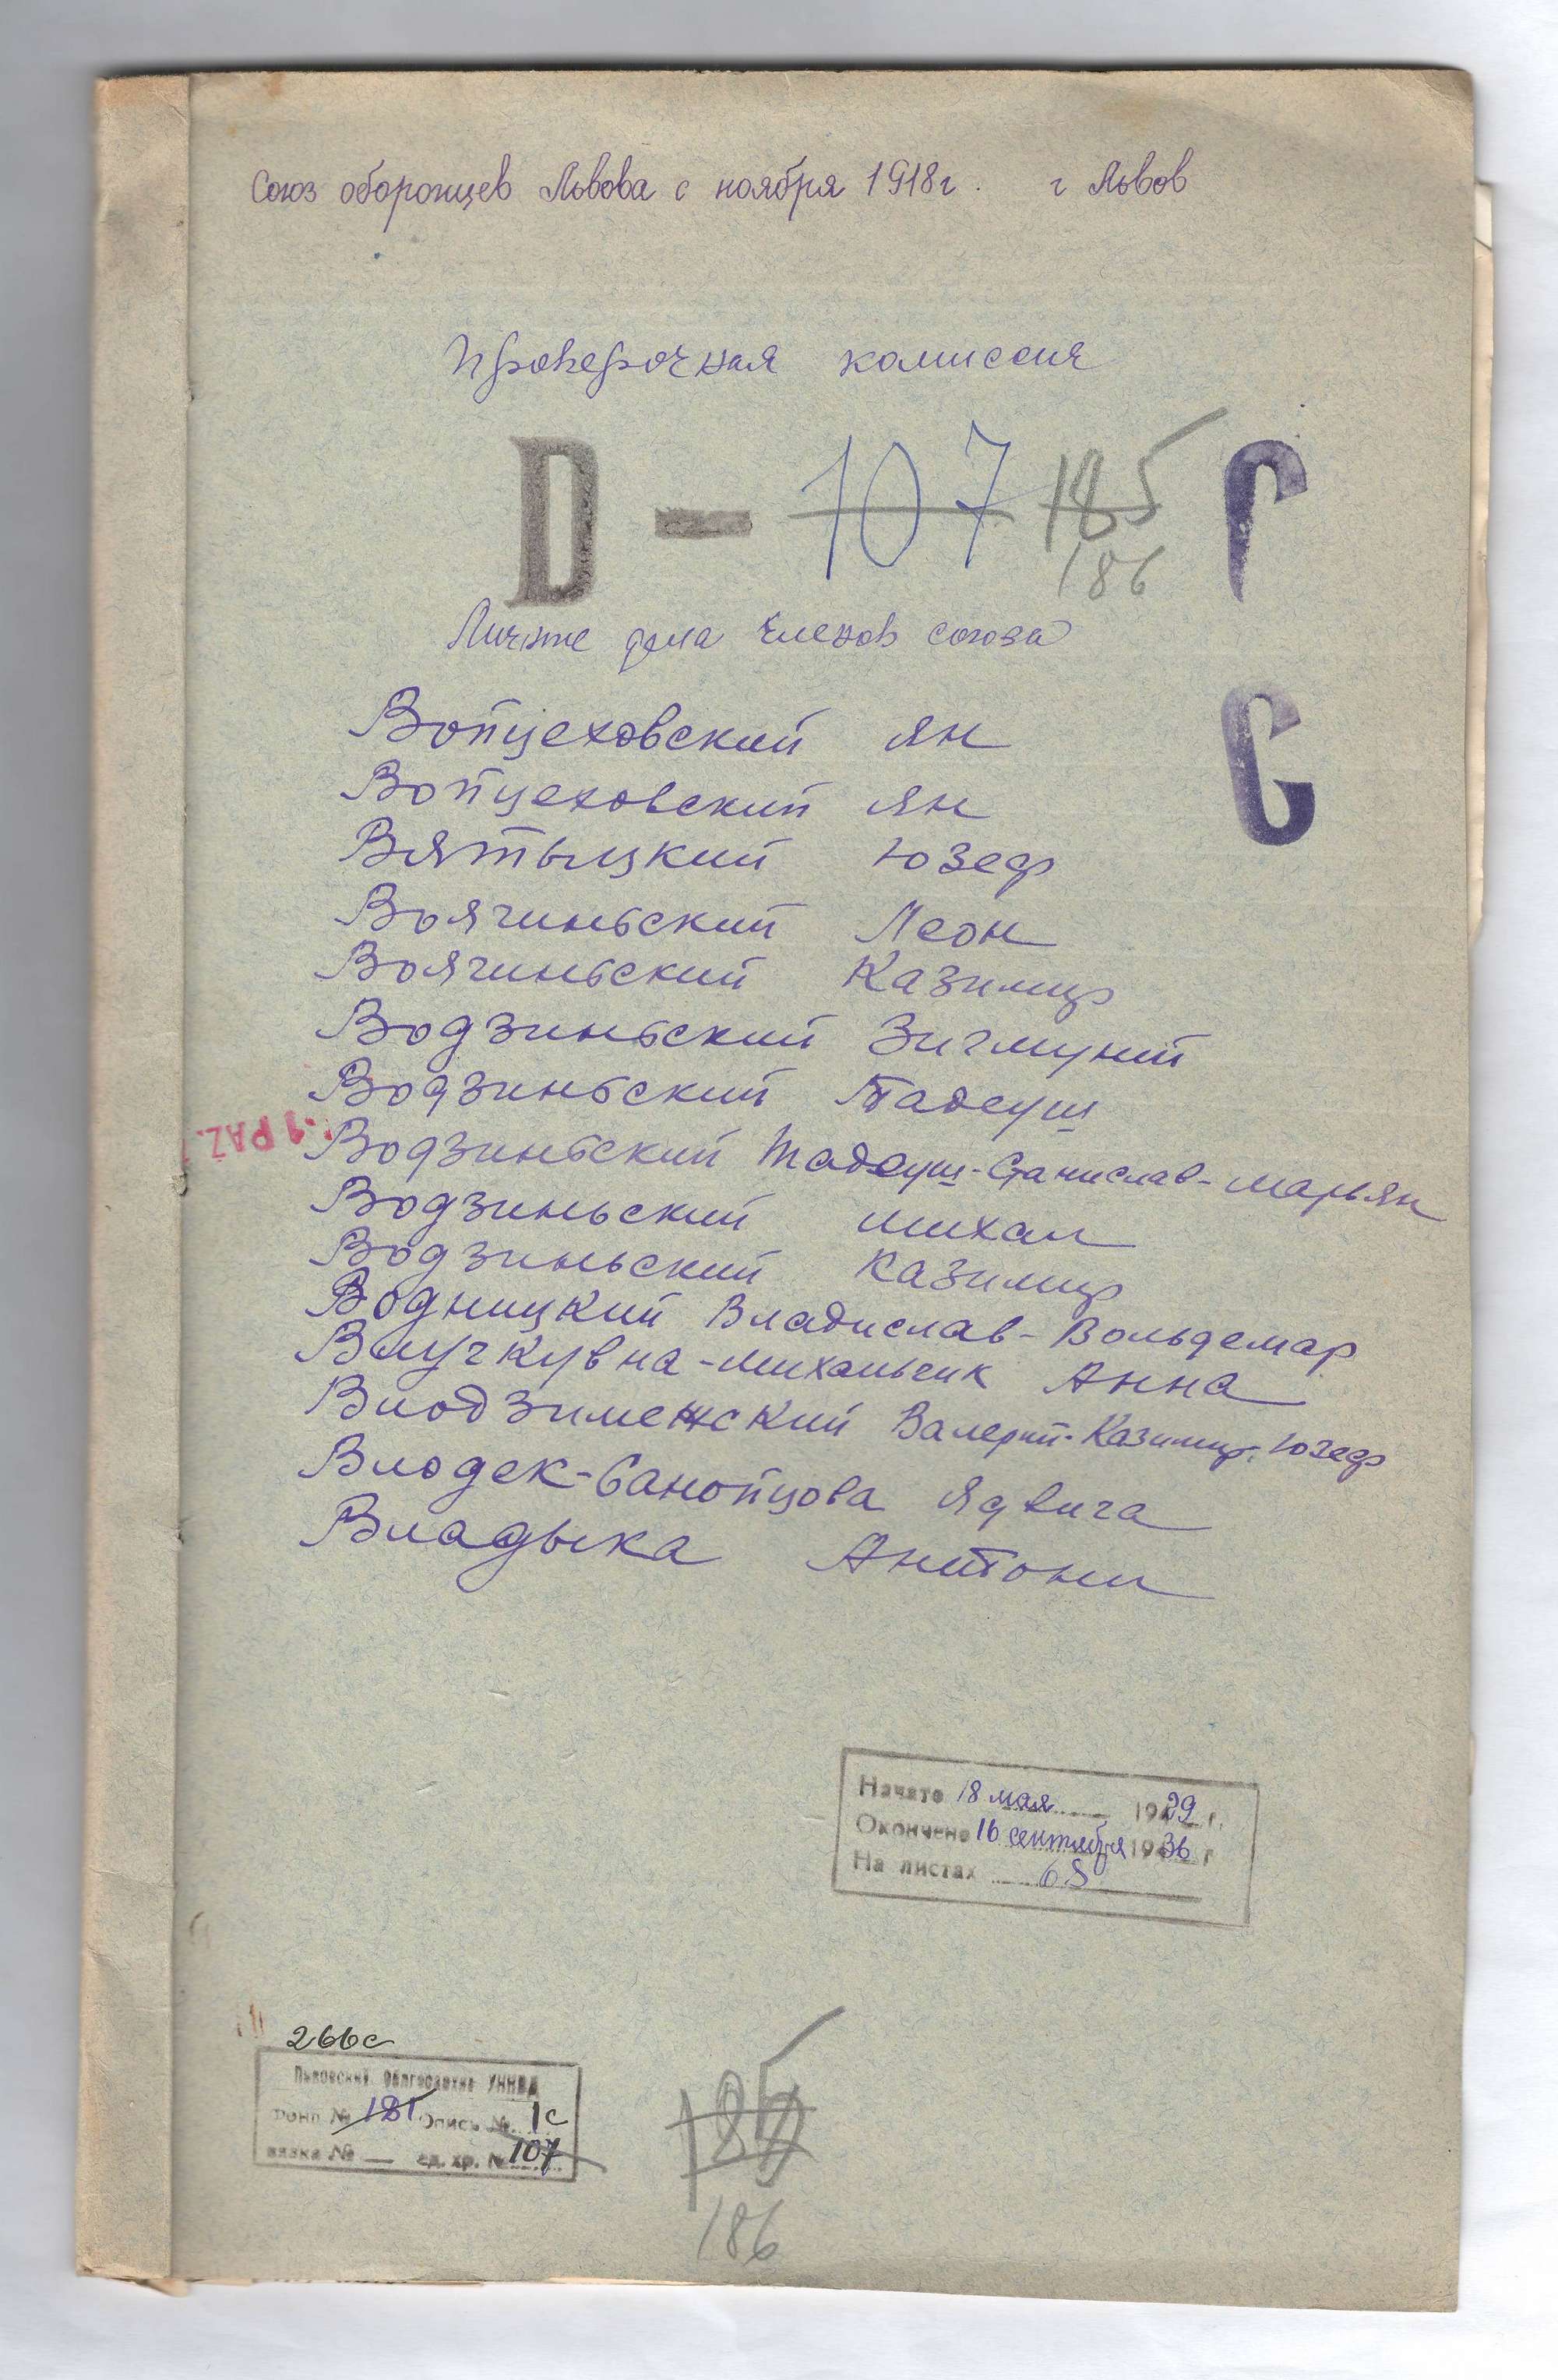 Союз оборонцев Львова с ноября 1918 г. г Львов
Проверочная комиссия
D – 107 185 Г
186
Личные дела членов союза
С
Войцеховский Ян
Войцеховский Ян
Вятыцкий Юзеф
Воячиньский Леон
Воячиньский Казимир
Водзиньский Зигмунт
Водзиньский Тадеуш
.1 PAŹ.
Водзиньский Тадеуш-Станислав-Марьян
Водзиньский Михал
Водзиньский Казимир
Водницкий Владислав-Вольдемар
Влучкувна-Михальчик Анна
Влодзимежский Валерий-Казимир-Юзеф
Влодек-Санойцова Ядвига
Владыка Антони
Начато 18 мая 1929 г.
Окончено 16 сентября 1936 г
На листах 68
266с
Львовский Облгосархив УНКВД
Фонд № 181 Опись № 1с
вязка № — ед. хр. № 107
186